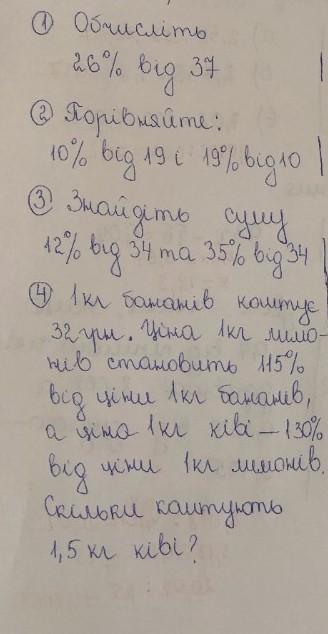 ① Обчисліть
26% від 37
② Порівняйте:
10% від 19 і 19% від 10
③ Знайдіть суму
12% від 34 та 35% від 34
④ 1кг бананів коштує
32 грн. Ціна 1кг лимо-
нів становить 115%
від ціни 1кг бананів,
а ціна 1кг ківі – 130%
від ціни 1кг лимонів.
Скільки коштують
1,5 кг ківі?